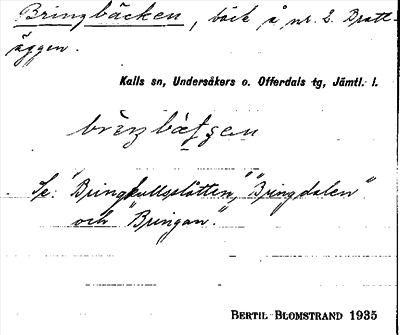 Bringbäcken, bäck å nr. 2. Bratt-
äggen.
Kalls sn, Undersåkers o. Offerdals tg, Jämtl. l.
Se: "Bringkullslåtten", "Bringdalen"
och "Bringan".
BERTIL BLOMSTRAND 1935